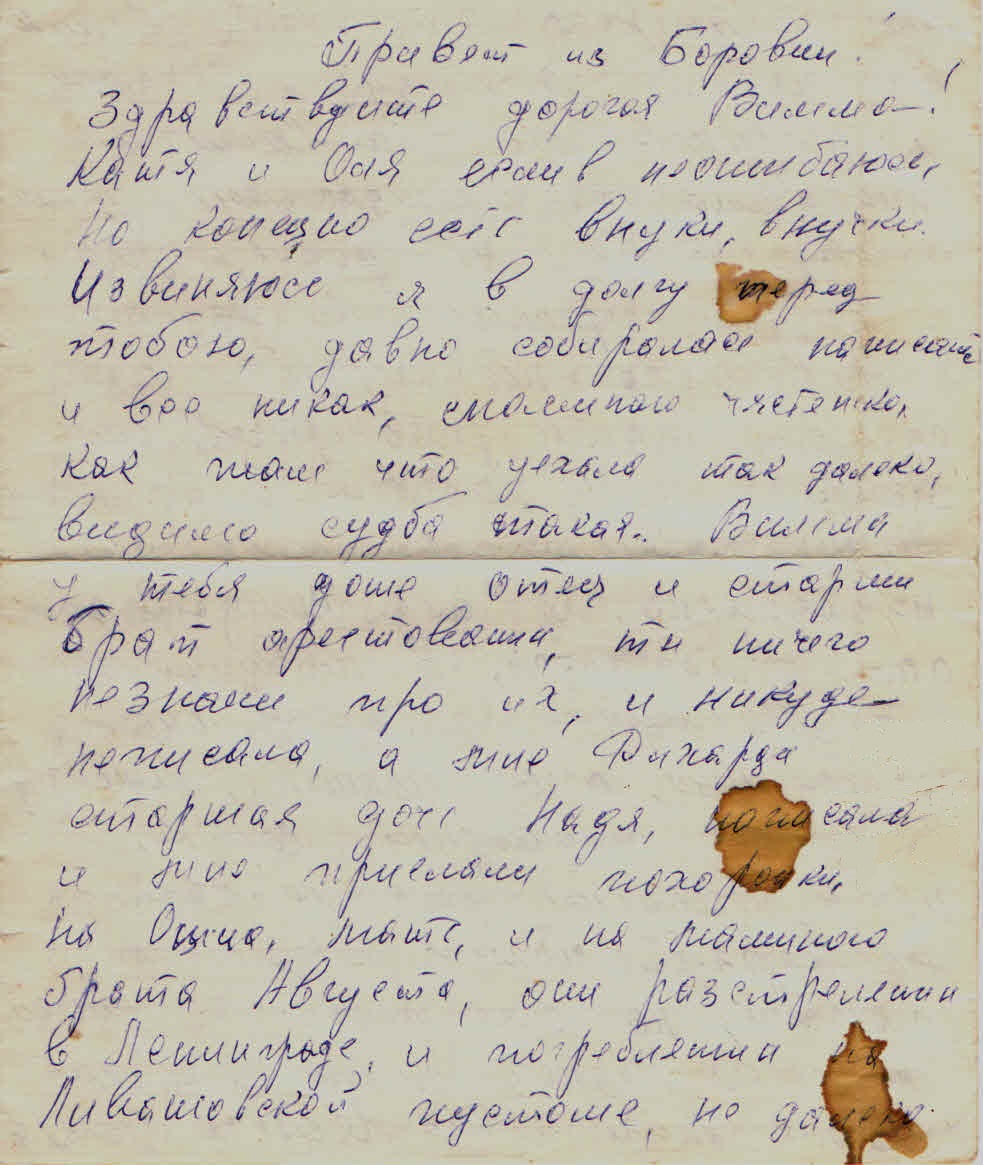 Привет из Боровии!
Здравствуите дорогая Вилма!
Катя и Оля если в неошибаюсь,
но конещно есть внуки, внучки.
Извиняюсь я в долгу перед
тобою, давно собиралася написать
и всо никак,
как жаль что уехала так далеко,
видимо судба такая. Вилма
у тебя доже отец и старши
брат арестовании, ти ничего
незнаеш про их, и никуде
неписала, а мне Рихарда
старшая доч Надя, написала
и мне прислали похоронки,
на Оцца, мать, и на маминого
брата Августа, они разстреляни
в Ленинграде, и погребляни на
Ливашовской пустоше, не далеко